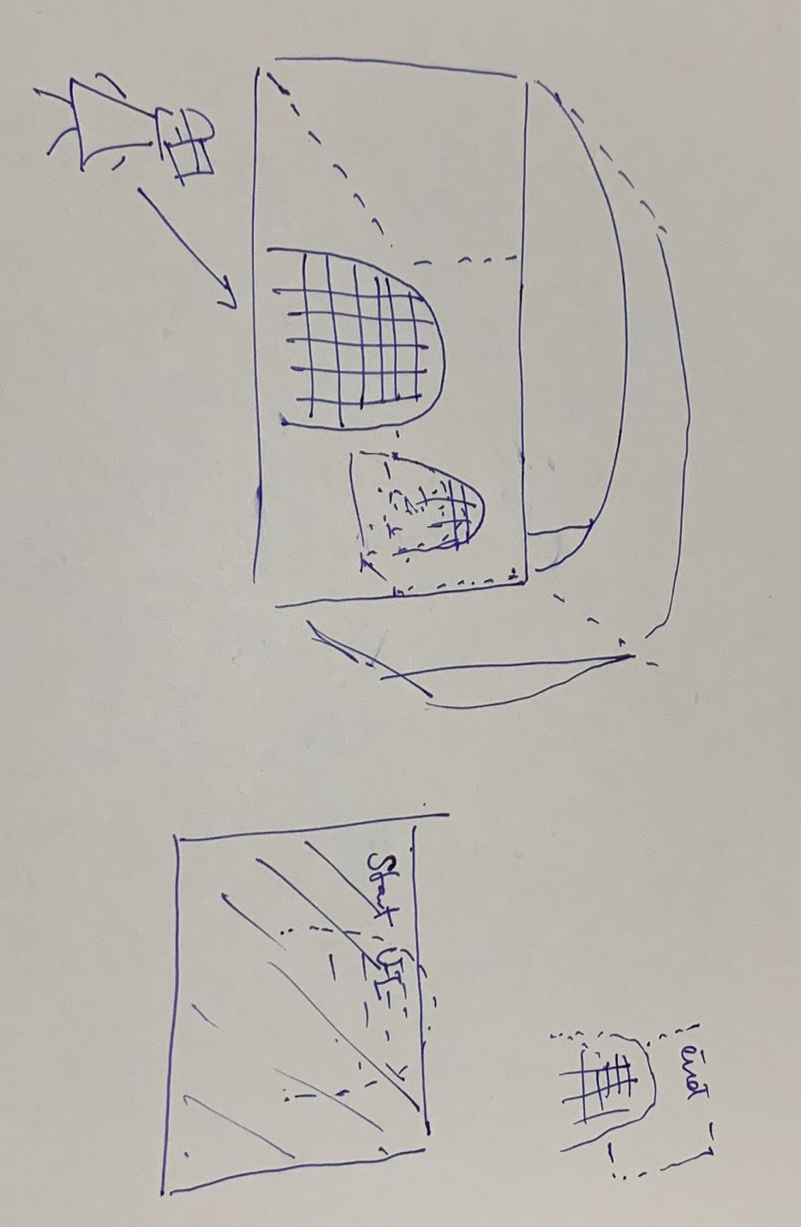 Start UI
end